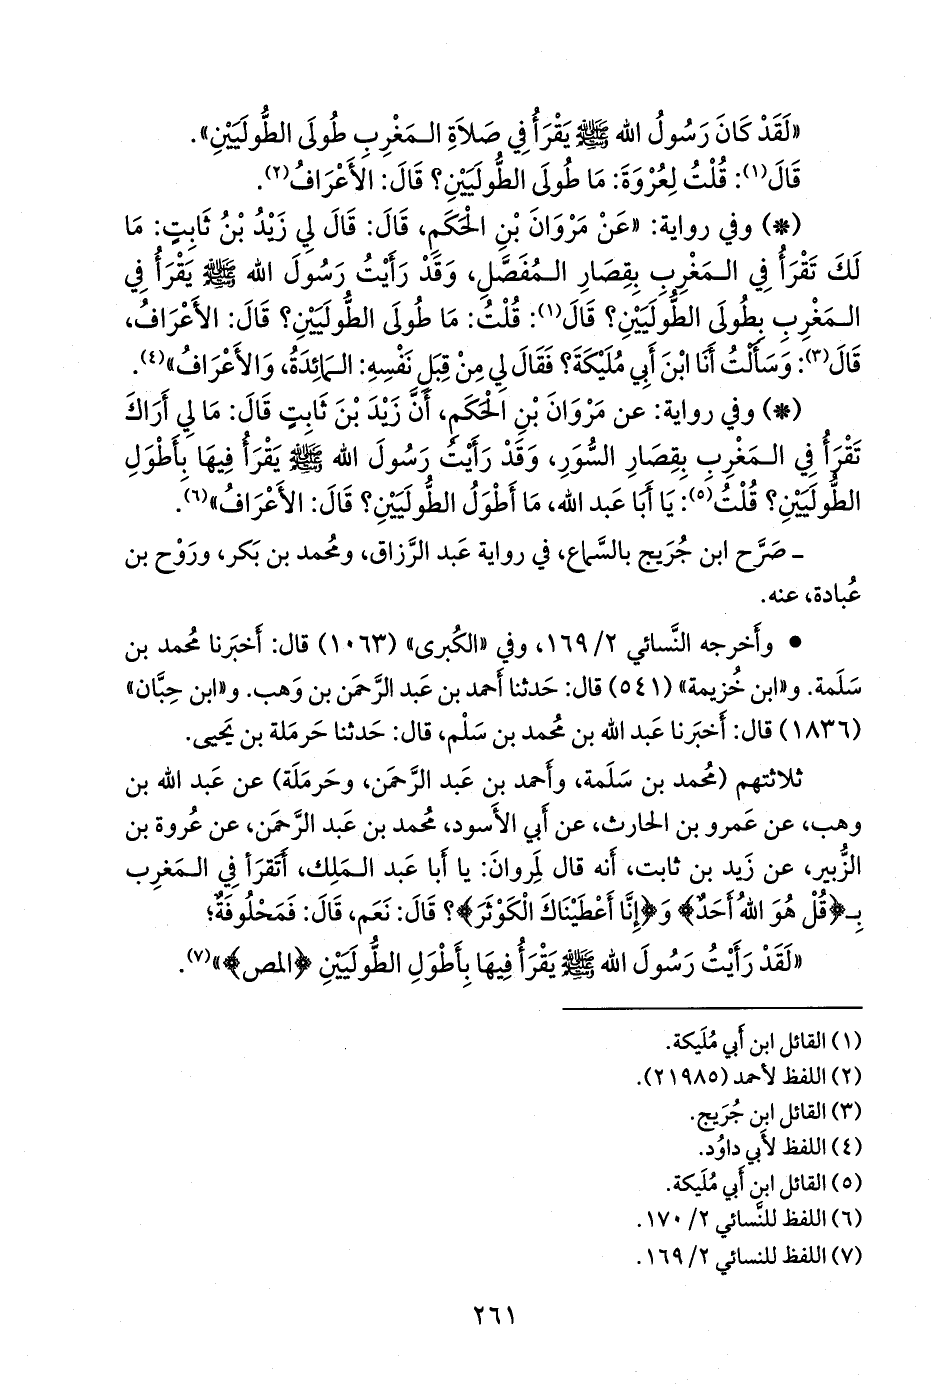 «لَقَدْ كَانَ رَسُولُ الله ﷺ يَقْرَأُ فِي صَلاَةِ الـمَغْرِبِ طُولَى الطُّولَيَيْنِ».
قَالَ(١): قُلْتُ لِعُرْوَةَ: مَا طُولَى الطُّولَيَيْنِ؟ قَالَ: الأَعْرَافُ(٢).
(*) وفي رواية: «عَنْ مَرْوَانَ بْنِ الْحَكَمِ، قَالَ: قَالَ لِي زَيْدُ بْنُ ثَابِتٍ: مَا
لَكَ تَقْرَأُ فِي الـمَغْرِبِ بِقِصَارِ الـمُفَصَّلِ، وَقَدْ رَأَيْتُ رَسُولَ الله ﷺ يَقْرَأُ فِي
الـمَغْرِبِ بِطُولَى الطُّولَيَيْنِ؟ قَالَ(١): قُلْتُ: مَا طُولَى الطُّولَيَيْنِ؟ قَالَ: الأَعْرَافُ،
قَالَ(٣): وَسَأَلْتُ أَنَا ابْنَ أَبِي مُلَيْكَةَ؟ فَقَالَ لِي مِنْ قِبَلِ نَفْسِهِ: الـمَائِدَةُ، وَالأَعْرَافُ»(٤).
(*) وفي رواية: عن مَرْوَانَ بْنِ الْحَكَمِ، أَنَّ زَيْدَ بْنَ ثَابِتٍ قَالَ: مَا لِي أَرَاكَ
تَقْرَأُ فِي الـمَغْرِبِ بِقِصَارِ السُّوَرِ، وَقَدْ رَأَيْتُ رَسُولَ الله ﷺ يَقْرَأُ فِيهَا بِأَطْوَلِ
الطُّولَيَيْنِ؟ قُلْتُ(٥): يَا أَبَا عَبد الله، مَا أَطْوَلُ الطُّولَيَيْنِ؟ قَالَ: الأَعْرَافُ»(٦).
ـ صَرَّح ابن جُرَيج بالسَّماع، في رواية عَبد الرَّزاق، ومُحمد بن بَكر، ورَوْح بن
عُبادة، عنه.
• وأَخرجه النَّسائي ٢/ ١٦٩، وفي «الكُبرى» (١٠٦٣) قال: أَخبَرنا مُحمد بن
سَلَمة. و«ابن خُزيمة» (٥٤١) قال: حَدثنا أَحمد بن عَبد الرَّحمَن بن وَهب. و«ابن حِبَّان»
(١٨٣٦) قال: أَخبَرنا عَبد الله بن مُحمد بن سَلْم، قال: حَدثنا حَرمَلة بن يَحيى.
ثلاثتهم (مُحمد بن سَلَمة، وأَحمد بن عَبد الرَّحمَن، وحَرمَلَة) عن عَبد الله بن
وهب، عن عَمرو بن الحارث، عن أَبي الأَسود، مُحمد بن عَبد الرَّحمَن، عن عُروة بن
الزُّبير، عن زَيد بن ثابت، أَنه قال لِمروانَ: يا أَبا عَبد الـمَلِك، أَتَقرَأ في الـمَغرِب
بِـ﴿قُلْ هُوَ اللهُ أَحَدٌ﴾ وَ﴿إِنَّا أَعْطَيْنَاكَ الْكَوْثَرَ﴾؟ قَالَ: نَعَم، قَالَ: فَمَحْلُوفَةٌ؛
«لَقَدْ رَأَيْتُ رَسُولَ الله ﷺ يَقْرَأُ فِيهَا بِأَطْوَلِ الطُّولَيَيْنِ ﴿المص﴾»(٧).
(١) القائل ابن أَبي مُلَيكة.
(٢) اللفظ لأحمد (٢١٩٨٥).
(٣) القائل ابن جُرَيج.
(٤) اللفظ لأَبي داوُد.
(٥) القائل ابن أَبي مُلَيكة.
(٦) اللفظ للنَّسائي ٢/ ١٧٠.
(٧) اللفظ للنسائي ٢/ ١٦٩.
٢٦١